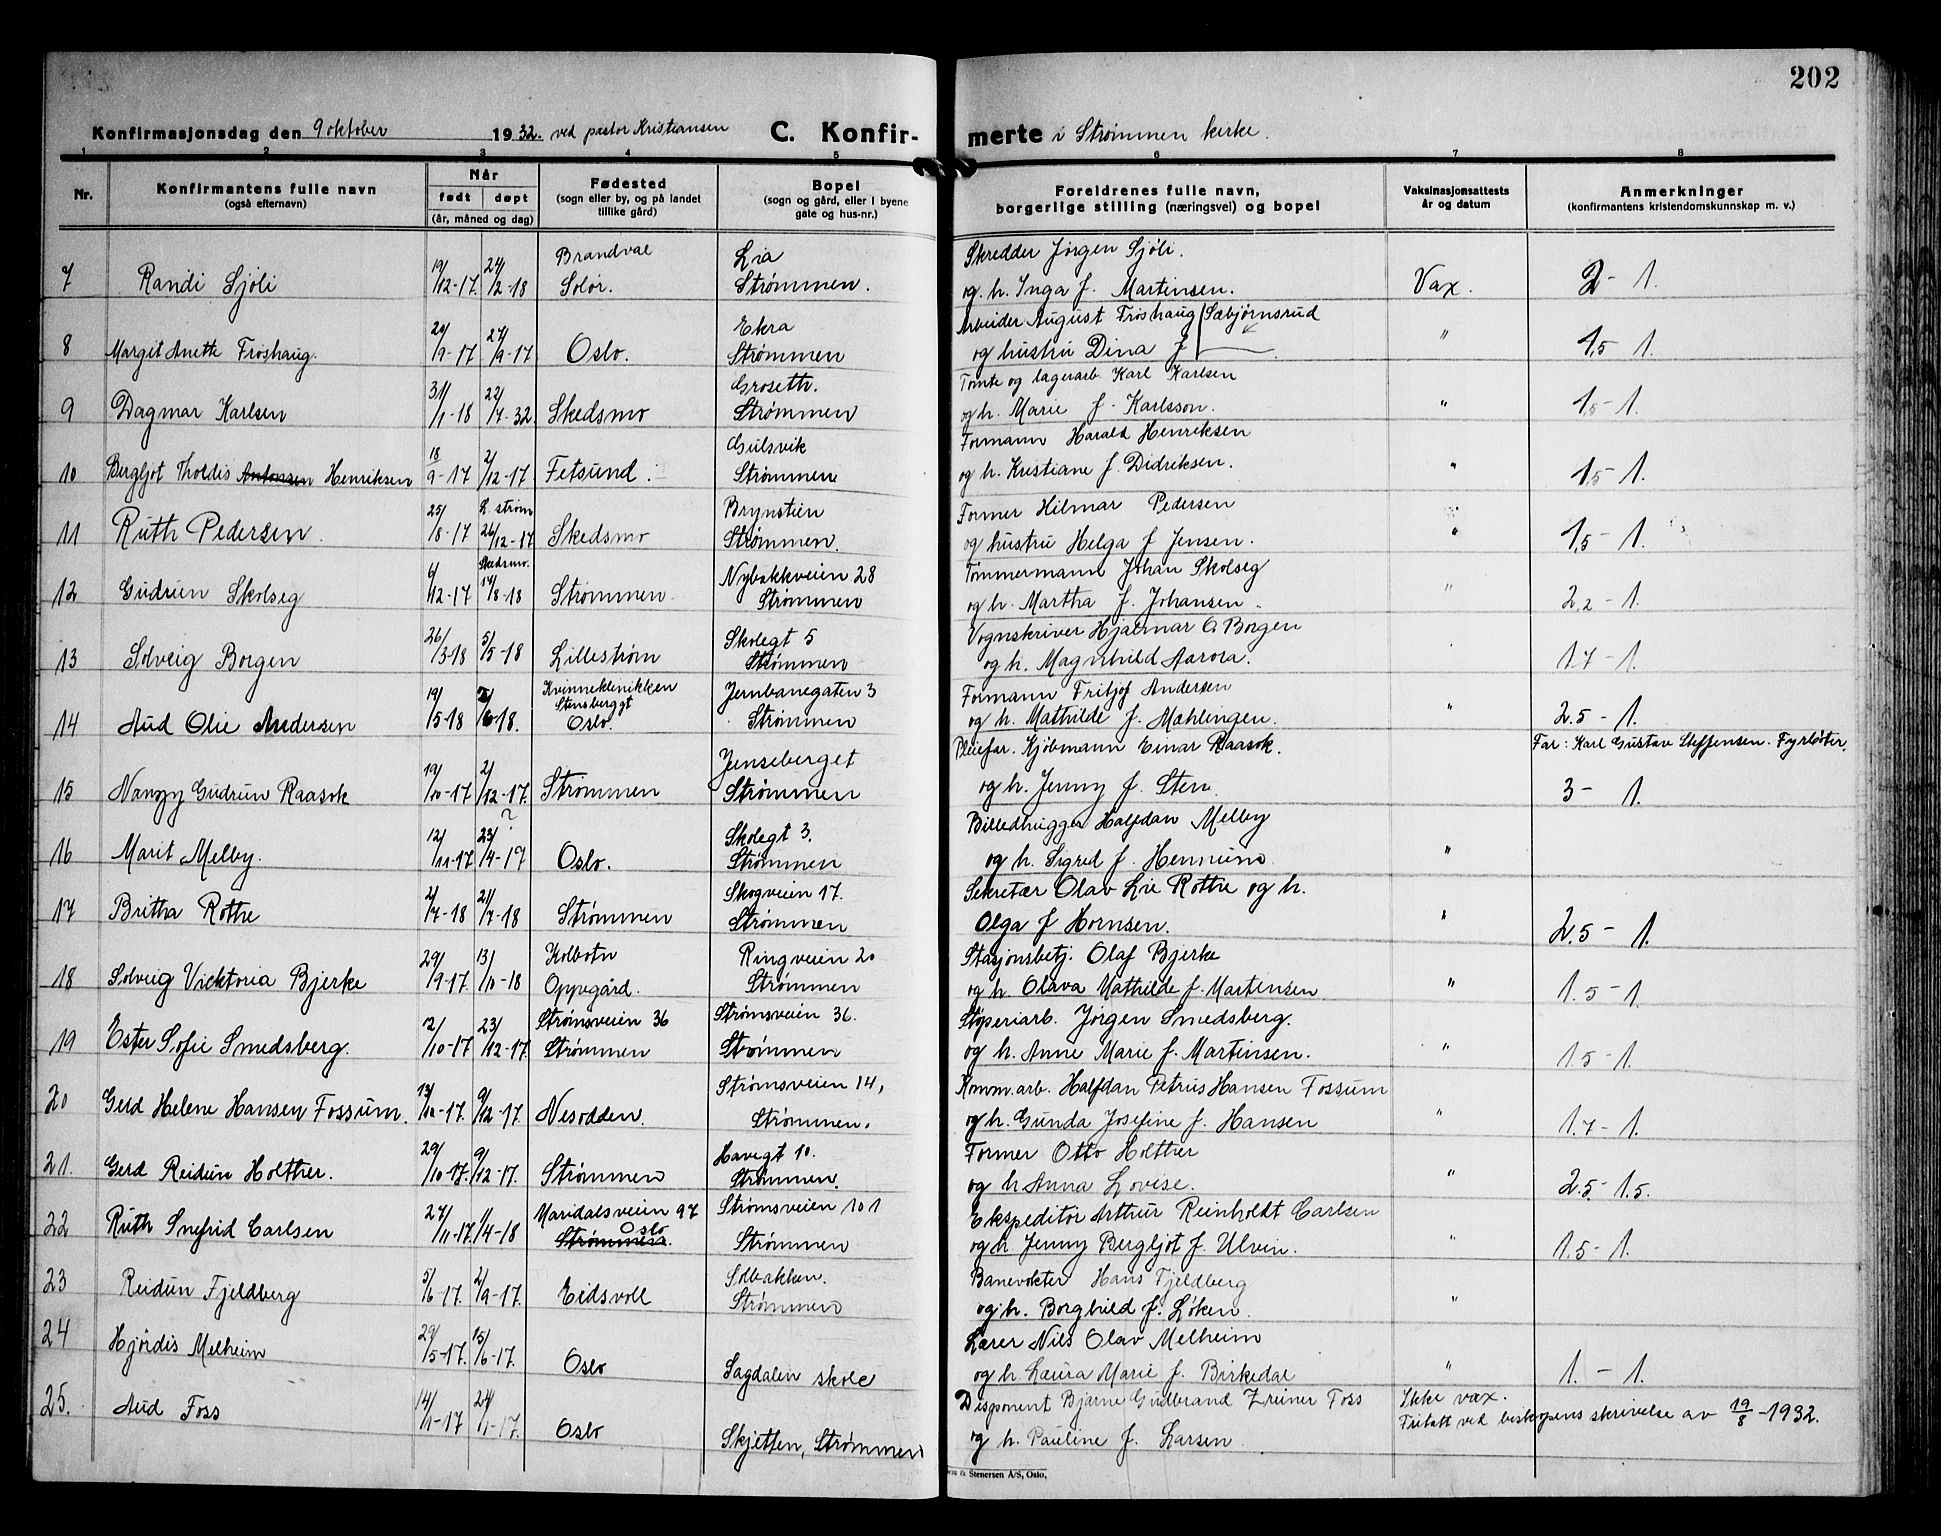 202
Konfirmasjonsdag den 9 oktober 1932. ved pastor Kristiansen C. Konfir-merte i Strømmen kirke.
1 2 3 4 5 6 7 8
Nr. Konfirmantens fulle navn (også efternavn) Når født døpt (år, måned og dag) Fødested (sogn eller by, og på landet tillike gård) Bopel (sogn og gård, eller i byene gate og hus-nr.) Foreldrenes fulle navn, borgerlige stilling (næringsvei) og bopel Vaksinasjonsattests år og datum Anmerkninger (konfirmantens kristendomskunnskap m. v.)
Brandval Lia Skredder Jørgen Sjøli.
7 Randi Sjøli 19/12-17. 24/2-18 Solør. Strømmen. og. h. Inga f. Martinsen. Vax. 2 - 1.
Ekra Arbeider August Frøshaug Sæbjørnsrud
8 Margit Anette Frøshaug. 20/9-17 27/9-17 Oslo. Strømmen og hustru Dina f " 1,5 1.
Groseth. Tomte og lagerarb. Karl Karlsen
9 Dagmar Karlsen 31/1-18 22/7-32. Skedsmo Strømmen og h. Marie f. Karlsson. " 1,5 - 1.
Gulsvik Formann Harald Henriksen
10 Bergljot Tholdis Antonsen Henriksen 18/9-17 2/12-17 Fetsund. Strømmen og h. Kristiane f. Didriksen. " 1,5 - 1.
L. strøm Brynstien Former Hilmar Pedersen
11 Ruth Pedersen 25/8-17 26/12-17 Skedsmo Strømmen. og hustru Helga f Jensen. " 1,5 - 1.
Skedsmo. Nybakkveien 28 Tømmermann Johan Skolseg
12 Gudrun Skolseg 9/12-17 14/8-18 Strømmen Strømmen og h. Martha f. Johansen. " 2,2 - 1.
Skolegt 5 Vognskriver Hjalmar G Borgen
13 Solveig Borgen 26/3-18 5/5-18 Lillestrøm Strømmen og h. Magnhild Aarora. 1.7 - 1.
Kvinneklinikken Stensberggt Jernbanegaten 3 Formann Fritjof Andersen
14 Aud Olie Andersen 19/5-18 /6-18. Oslo. Strømmen og h. Mathilde f. Mæhlingen. " 2.5 - 1.
Jenseberget Pleiefar. Kjøbmann Einar Raasok. Far: Karl Gustav Steffensen. Fyrbøter.
15 Nanzy Gudrun Raasok 19/10-17 2/12-17. Strømmen Strømmen og h. Jenny f. Sten. 3 - 1.
? Skolegt 3. Billedhugger Halfdan Melby
16 Marit Melby. 12/11-17 23/4-19 Oslo. Strømmen og h. Sigrid f. Hennum "
Skogveien 17. Sekretær Olav Lie Rothe og h.
17 Britha Rothe 2/7-18 21/7-18 Strømmen Strømmen Olga f Hornsen. " 2.5 - 1.
Kolbotn Ringveien 20 Stasjonsbetj. Olaf Bjerke
18 Solveig Vicktoria Bjerke 29/9-17. 13/10-18 Oppegård. Strømmen og h. Olava Mathilde f. Martinsen " 1.5 - 1.
Strømsveien 36 Strømsveien 36. Støperiarb. Jørgen Smedsberg.
19 Ester Sofie Smedsberg. 12/10-17 23/12-17. Strømmen Strømmen og h. Anne Marie f. Martinsen. " 1.5 - 1.
Strømsveien 14, Komm.arb. Halfdan Petrus Hansen Fossum
20 Gerd Helene Hansen Fossum. 13/10-17. 9/12-17. Nesodden. Strømmen. og h. Gunda Josefine f. Hansen " 1.7 - 1.
Havegt 10. Former Otto Holther
21. Gerd Reidun Holther. 29/10-17. 9/12-17. Strømmen Strømmen. og h Anna Lovise. " 2.5 - 1.5.
Maridalsveien 97 Oslo Strømsveien 101 Ekspeditør Arthur Reinholdt Carlsen
22 Ruth Snefrid Carlsen 27/11-17. 11/4-18 Strømmen. Strømmen og h. Jenny Bergljot f. Ulvin. " 1.5 - 1.
Solbakken. Banevokter Hans Fjeldberg
23 Reidun Fjeldberg 5/6-17. 2/9-17. Eidsvoll Strømmen og h. Borghild f. Løken. "
Lærer Nils Olav Melheim
24 Hjørdis Melheim 29/5-17. 15/6-17. Oslo Sagdalen skole og h. Laura Marie f. Birkedal " 1. - 1.
Disponent Bjarne Gudbrand Zreiner Foss Ikke vax.
25. Aud Foss 14/1-17 24/1-17. Oslo Skjetten, Strømmen og h. Pauline f. Larsen Fritatt ved biskopens skrivelse av 19/8-1932.
Stenersen A/S, Oslo.